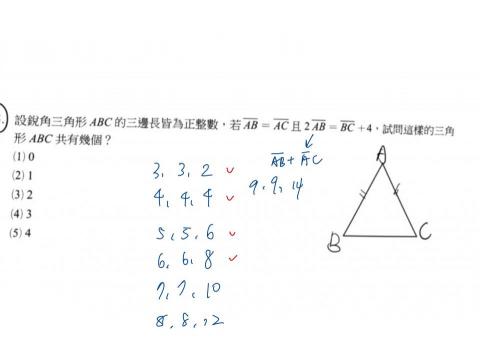 設銳角三角形 ABC 的三邊長皆為正整數，若 AB = AC 且 2AB = BC + 4，試問這樣的三角
形 ABC 共有幾個？
(1) 0
(2) 1
(3) 2
(4) 3
(5) 4
3, 3, 2 ✓
4, 4, 4 ✓
5, 5, 6 ✓
6, 6, 8 ✓
7, 7, 10
8, 8, 12
AB + AC
9, 9, 14
A
B
C